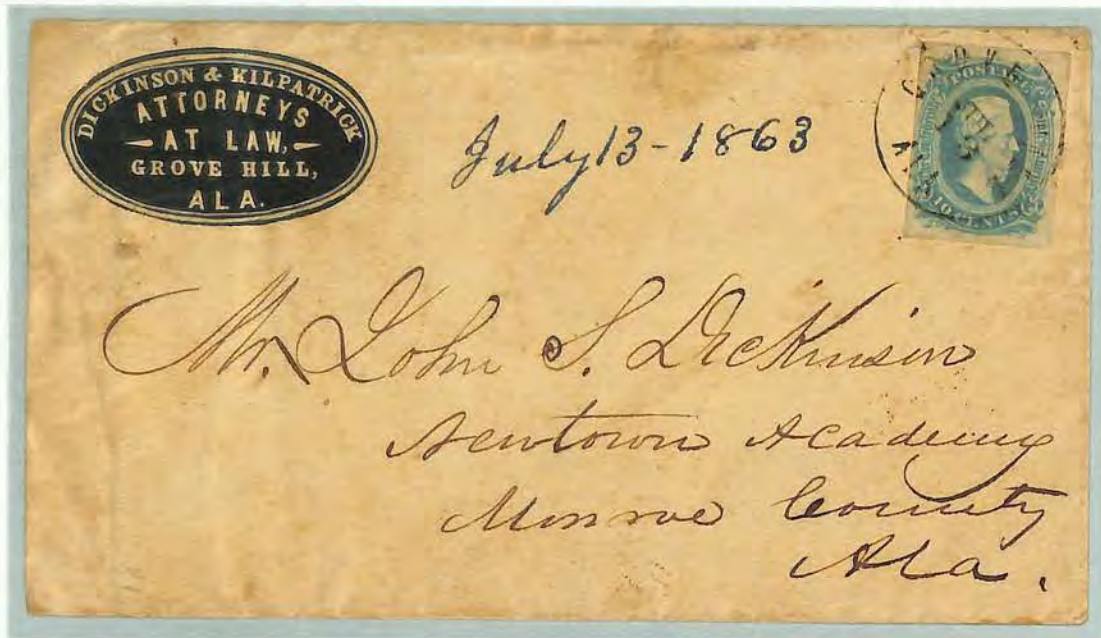 DICKINSON & KILPATRICK
ATTORNEYS
AT LAW,
GROVE HILL,
ALA.
July 13 - 1863
GROVE
JUL
POSTAGE
10 CENTS
Mr. John S. Dickinson
Newtown Academy
Monroe County
Ala.